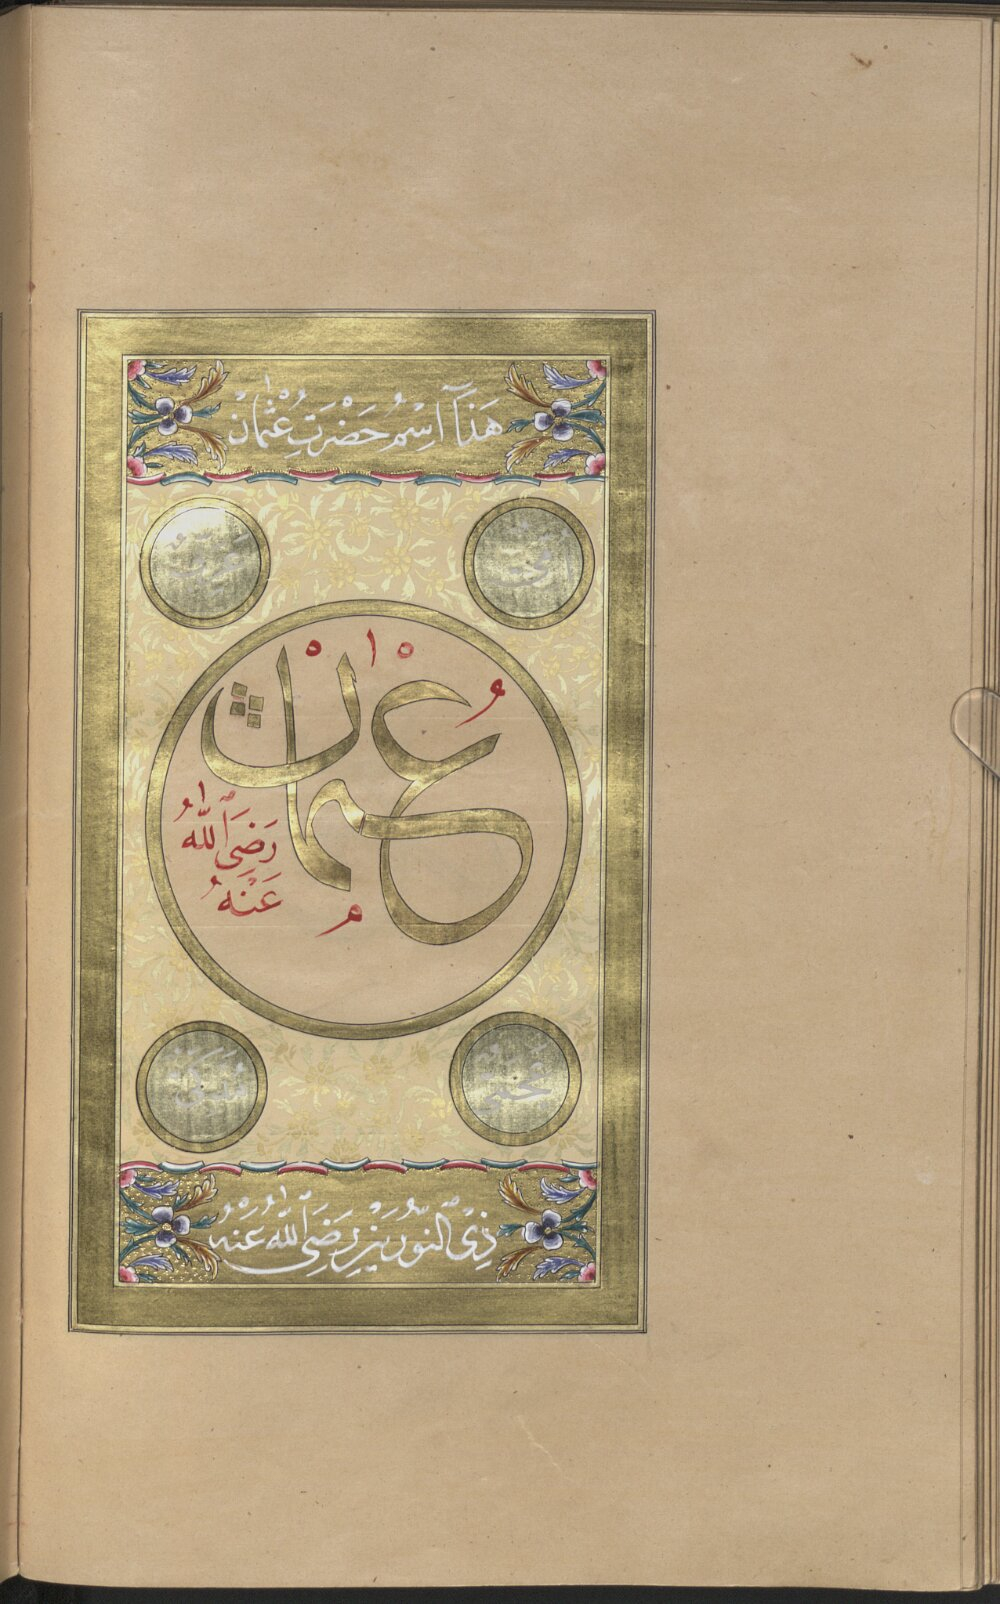 هَذَآ اِسْمُ حَضْرَتِ عُثْمٰانْ
عُثْمٰانْ
رَضِىَ اللّٰهُ
عَنْهُ
ذِى النُّورَيْنِ رَضِىَ اللّٰهُ عَنْهُ